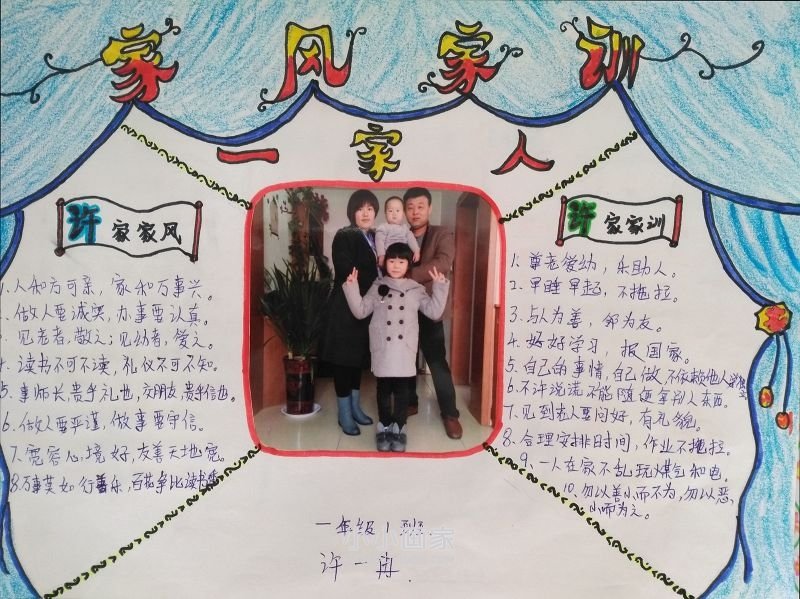 家风家训
一家人
许家家风
1.人和方可亲，家和万事兴。
2.做人要诚实，办事要认真。
3.见老者，敬之；见幼者，爱之。
4.读书不可不读，礼仪不可不知。
5.事师长，贵乎礼也，交朋友，贵乎信也。
6.做人要严谨，做事要守信。
7.宽容心境好，友善天地宽。
8.万事莫如行善乐，百花争比读书香
许家家训
1.尊老爱幼，乐助人。
2.早睡早起，不拖拉。
3.与人为善，邻为友。
4.好好学习，报国家。
5.自己的事情，自己做不依赖他人
6.不许说谎不能随便拿别人东西。
7.见到老人要问好，有礼貌。
8.合理安排时间，作业不拖拉。
9.一人在家不乱玩煤气和电。
10.勿以善小而不为，勿以恶，
小而为之。
一年级1班
许一冉